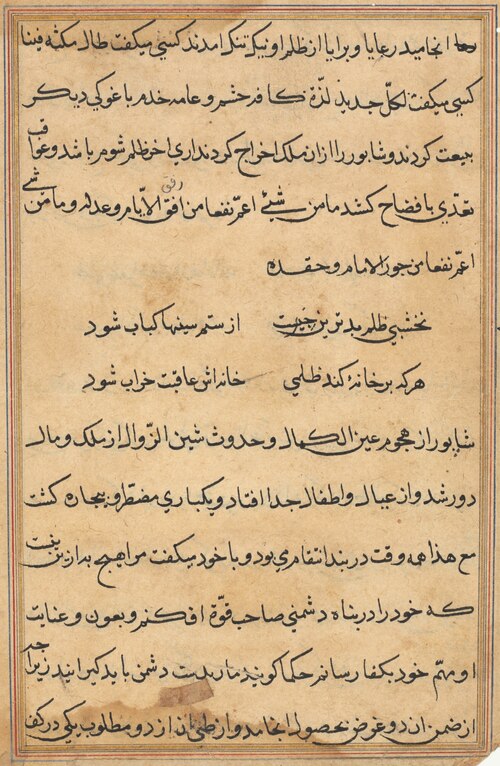 انجامید رعایا و برایا از ظلم او نیک تنک امدند کسی میکفت طال مکثه فینا
کسی میکفت لکلّ جدید لذّة کافر حشر و عامه خدم با غوکی دیکر
بیعت کردند و شابور را از ان ملک اخراج کردند اری اخر ظلم شوم باشد و عواقب
تعدّی بافضاح کشد ما من شیئ اعمّ نفعا من رفق الامام و عدله و ما من شیٔ
اعمّ نفعا من جور الامام و حقده
نخشبی ظلم بدترین چیزیست از ستم سینها کباب شود
هرکه بر خانهٔ کند ظلمی خانه اش عاقبت خراب شود
شابور از هجوم عین الکمال و حدوث شین الزّوال از ملک و مال
دور شد و از عیال و اطفال جدا افتاد و یکباری مضطر و بیچاره کشت
مع هذا همه وقت در بند انتقام می بود و با خود میکفت مرا هیچ به ازین نیست
که خود را در پناه دشمنی صاحب قوّة افکنم و بعون و عنایت
او مهمّ خود بکفا رسانم حکما کویند مار بدست دشمن باید کیرانید زیرا چه
از ضمن ان دو غرض بحصول انجامد و از طی ان از دو مطلوب یکی در کف